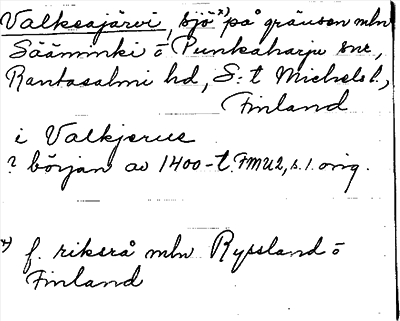 Valkeajärvi, sjö x) på gränsen mln
Sääminki o Punkaharju snr,
Rantasalmi hd, S:t Michels l.,
Finland
i Valkjerue
? början av 1400-t. FMU2, s.1. orig.
x) f. riksrå mln Ryssland o
Finland